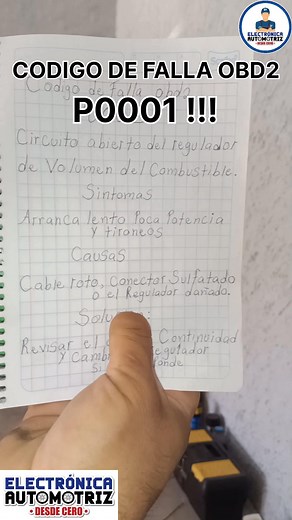 ELECTRÓNICA
AUTOMOTRIZ
DESDE CERO
CODIGO DE FALLA OBD2
Codigo de falla obd2
P0001 !!!
Circuito abierto del regulador
de Volumen del Combustible.
Sintomas
Arranca lento Poca Potencia
y tirones
Causas
Cable roto, Conector Sulfatado
o el Regulador dañado.
Revisar el Continuidad
y
ELECTRÓNICA
AUTOMOTRIZ
DESDE CERO